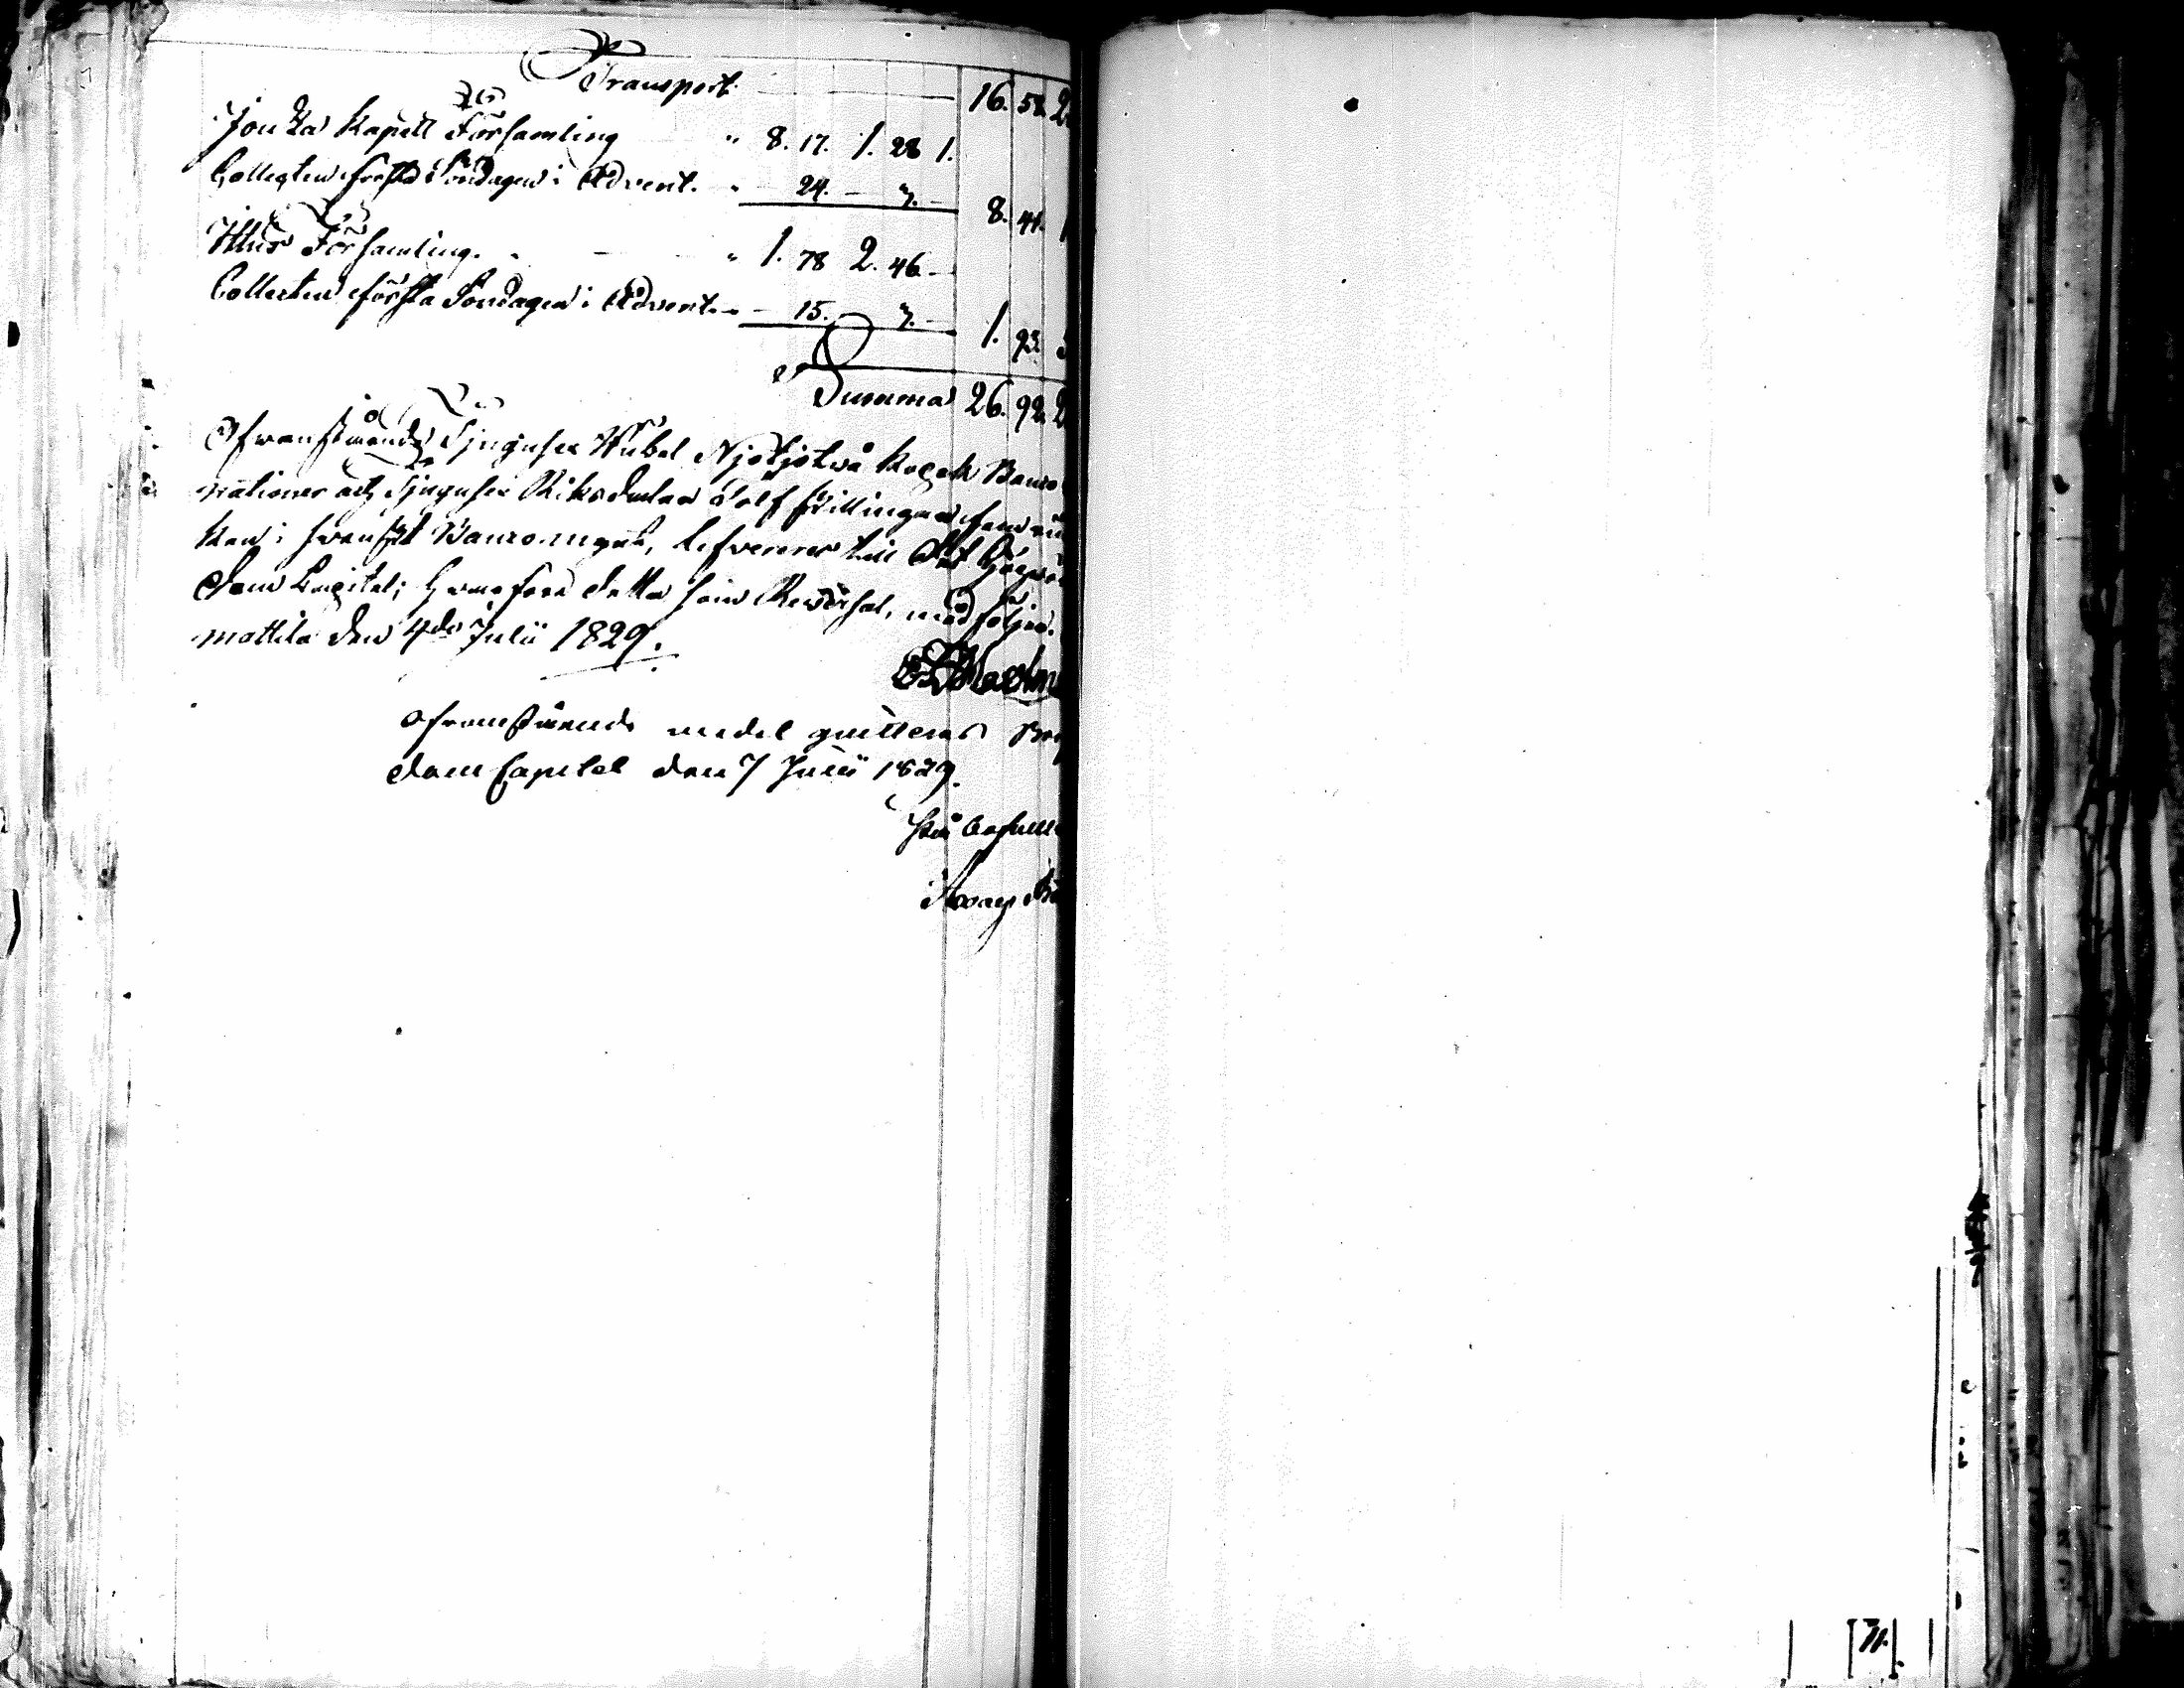 Transport 16. 58. 2
Jonza Kapell Församling " 8. 17. 1. 28 1.
Collecten första Söndagen i Advent. " - 24. - 7. - 8. 41. 1
Ithis Församling. " 1. 78 2. 46. -
Collecten första Söndagen i Advent. - 15. 7. - 1. 93.
Summa 26. 92. 2
Ofvanstående Tjugusex Rubel Nijotjotvå Kopek Banco
nationer och Tjugusex Riksdaler Tolf skillingar fem
ken i svenskt Banco mynt, lefvereras till
Dom Capitel; hvarföre detta som Reversal, medföljer.
mattila den 4de Julii 1829.
Ofvanstående medel quitteras
Dom Capitel den 7 Julii 1829.
På
71.